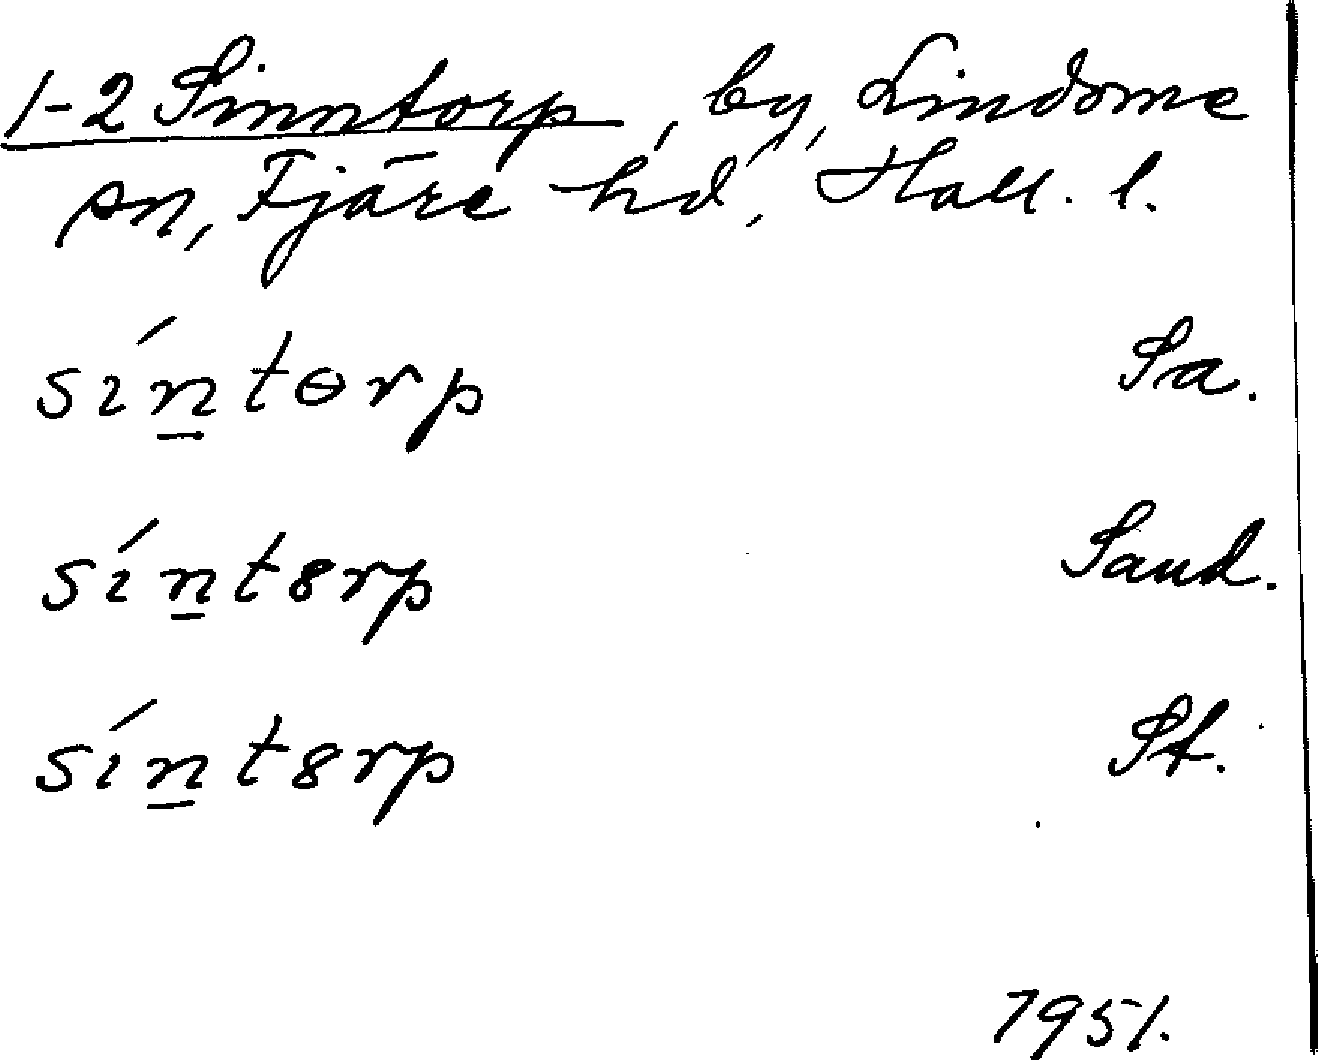 1-2 Sinntorp, by, Lindome
sn, Fjäre hd, Hall. l.
sín̲tɵrp Sa.
sín̲t8rp Sand.
sín̲t8rp St.
1951.